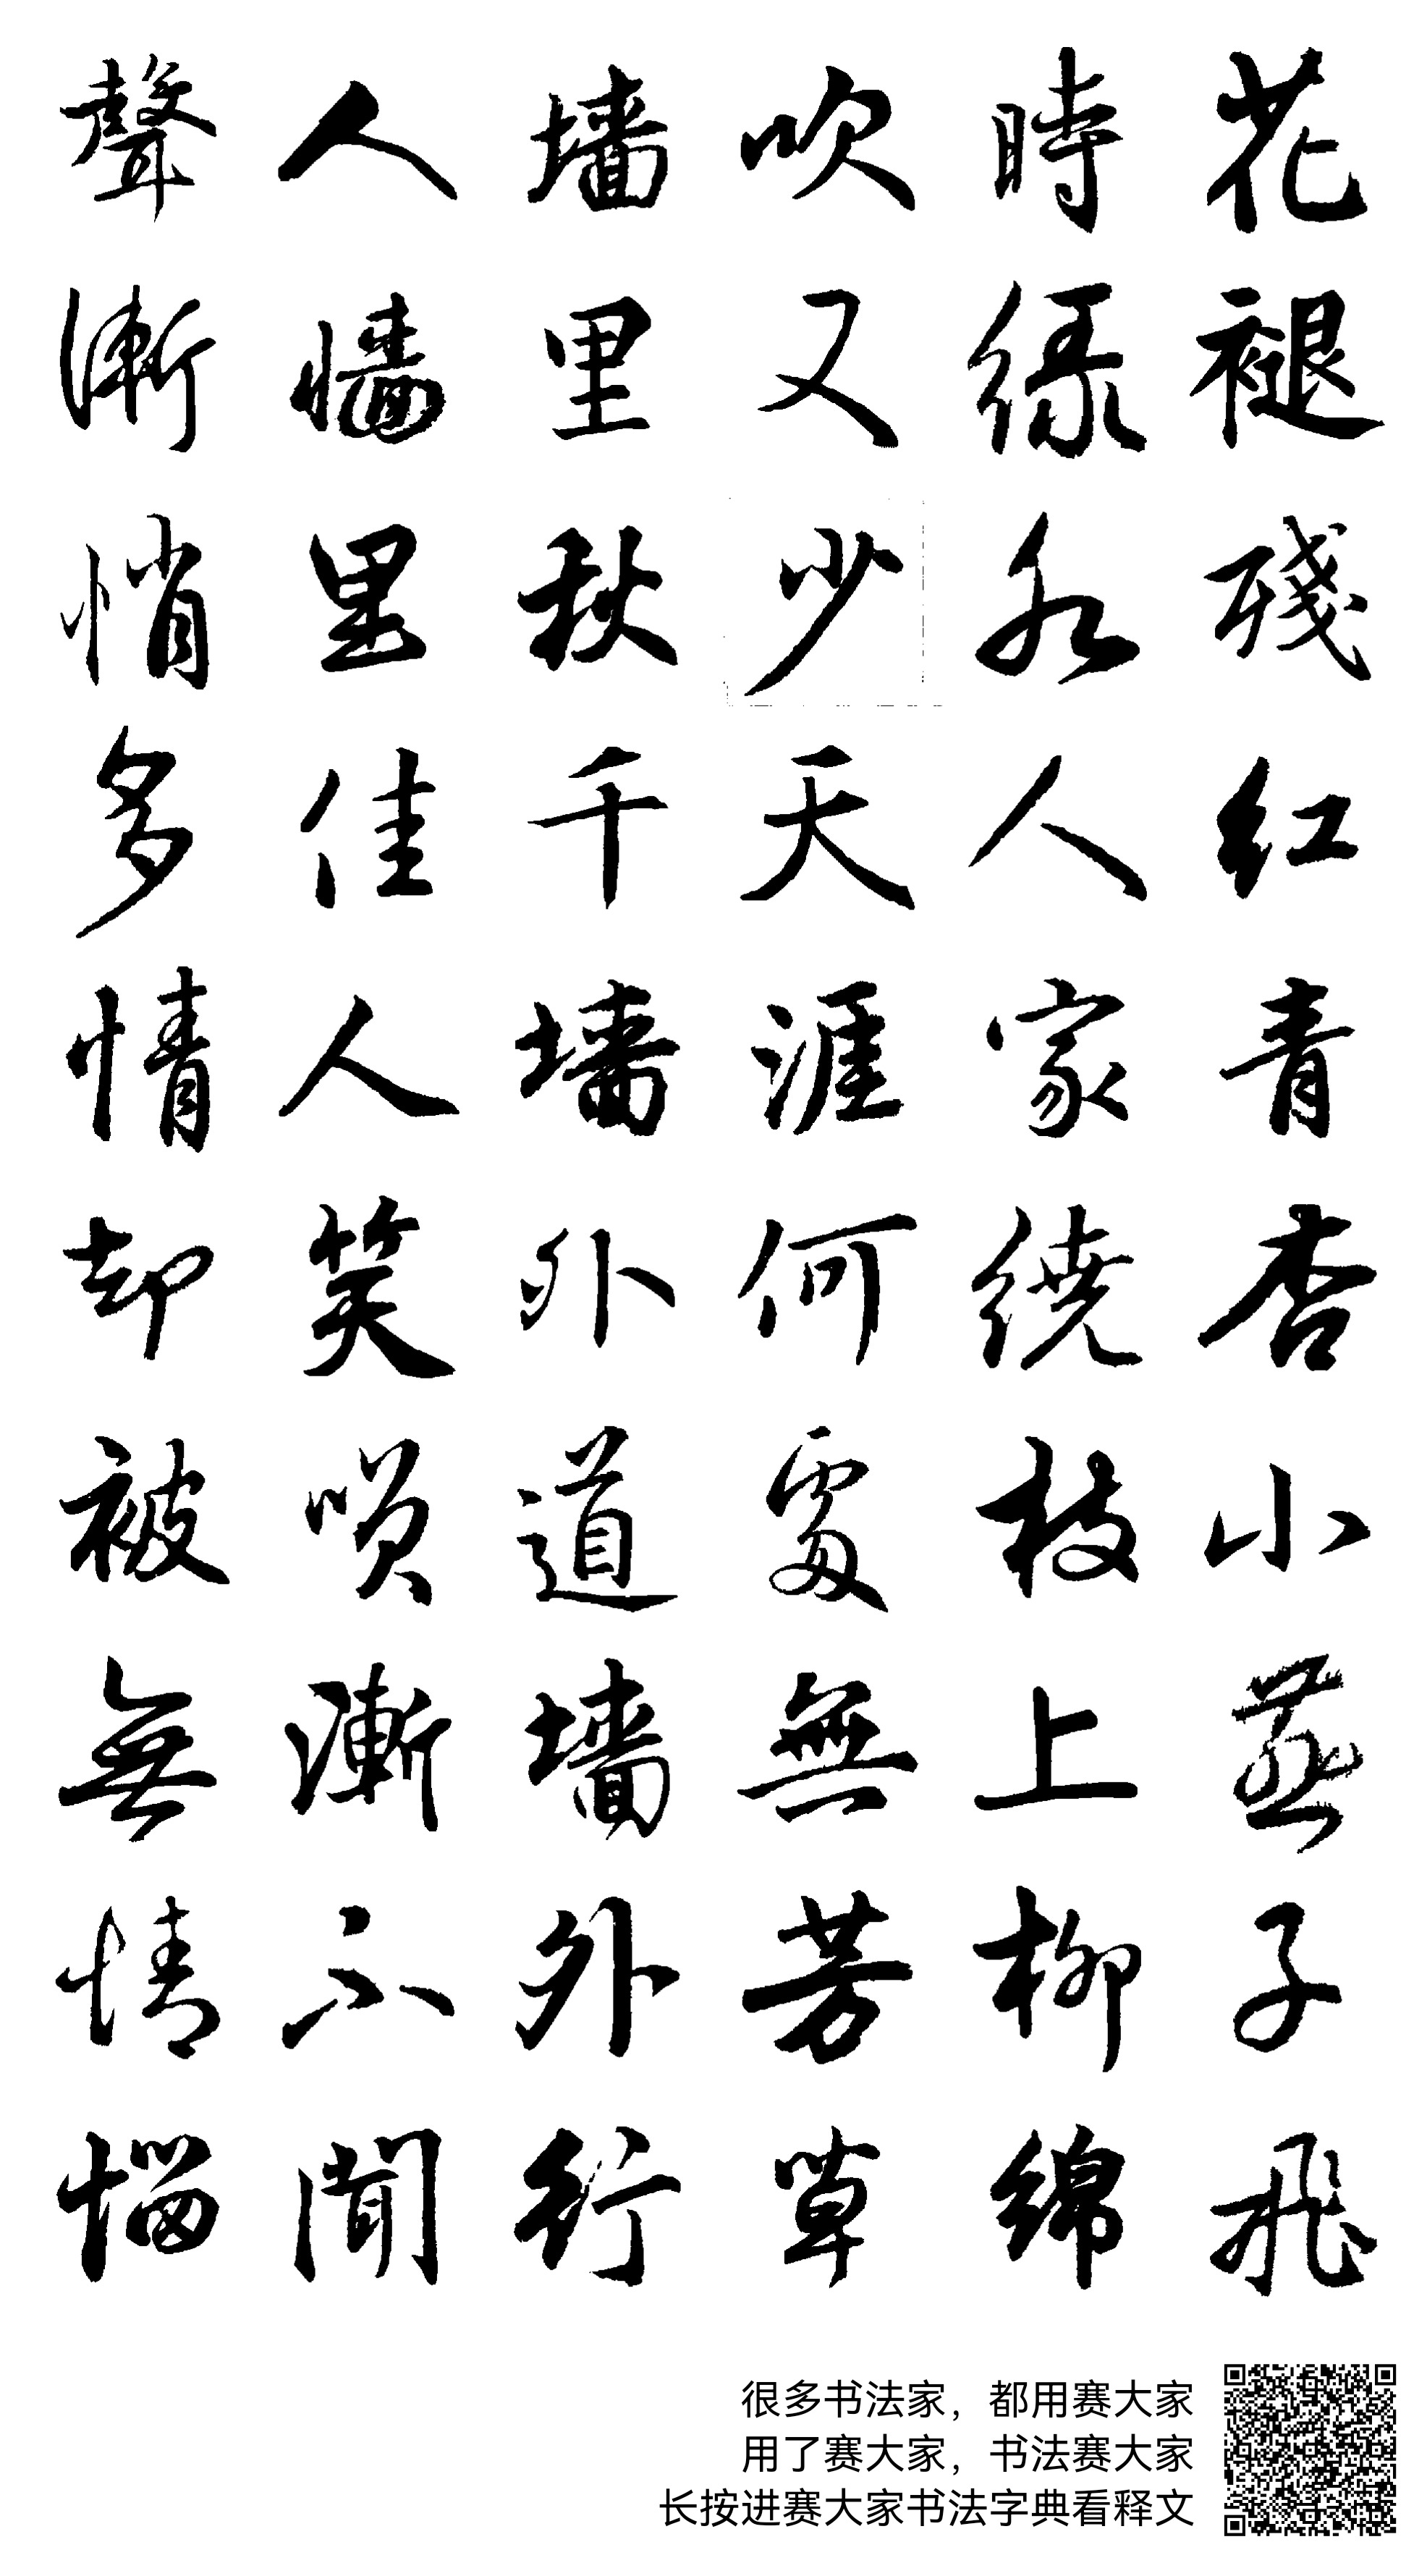 花褪殘紅青杏小燕子飛
時緑水人家繞枝上柳綿
吹又少天涯何處無芳草
墙里秋千墙外道墙外行
人墙里佳人笑笑漸不聞
聲漸悄多情却被無情惱
很多书法家，都用赛大家
用了赛大家，书法赛大家
长按进赛大家书法字典看释文